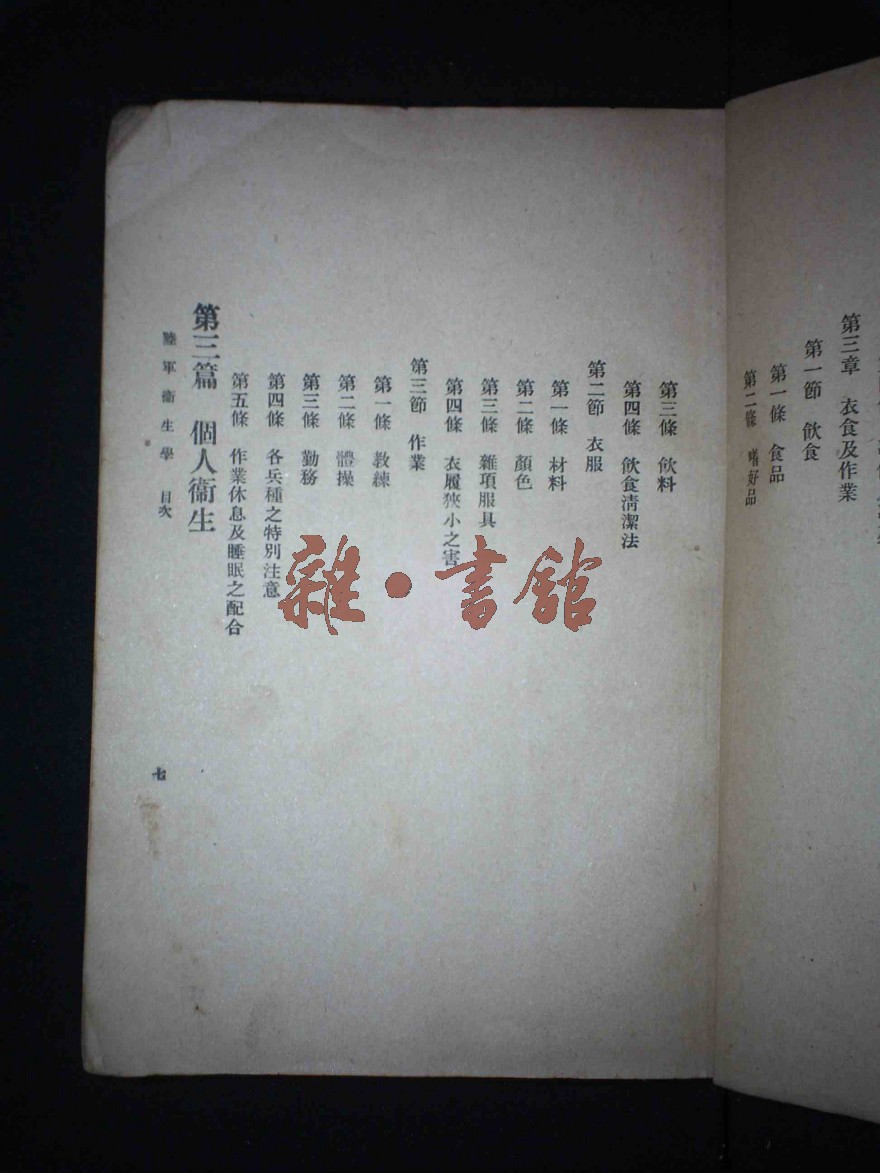 第三章 衣食及作業
第一節 飲食
第一條 食品
第二條 嗜好品
第三條 飲料
第四條 飲食淸潔法
第二節 衣服
第一條 材料
第二條 顏色
第三條 雜項服具
第四條 衣履狹小之害
第三節 作業
第一條 敎練
第二條 體操
第三條 勤務
第四條 各兵種之特別注意
第五條 作業休息及睡眠之配合
第三篇 個人衞生
陸軍衞生學 目次
七
雜·書館